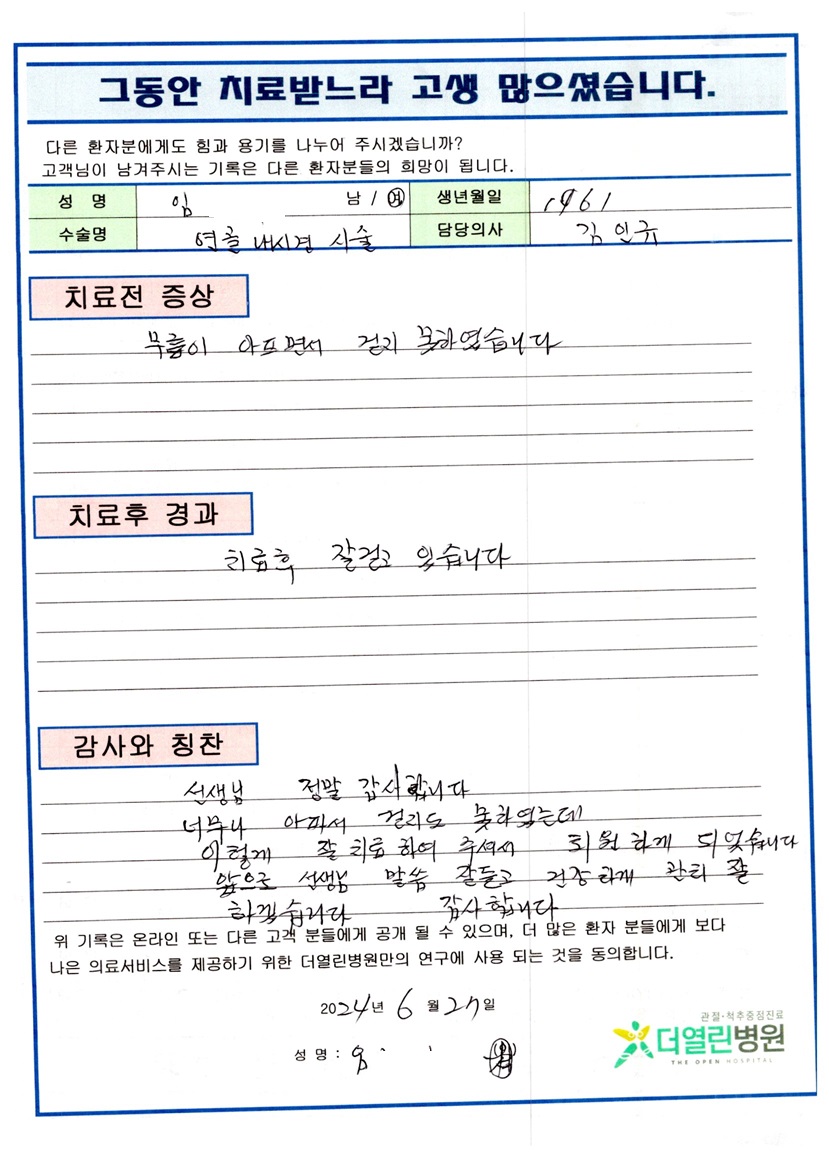 그동안 치료받느라 고생 많으셨습니다.
다른 환자분에게도 힘과 용기를 나누어 주시겠습니까?
고객님이 남겨주시는 기록은 다른 환자분들의 희망이 됩니다.
성 명 임 남 / 여 생년월일 1961
수술명 연골 내시경 시술 담당의사 김인규
치료전 증상
무릎이 아프면서 걷지 못하였습니다
치료후 경과
치료후 잘걷고 있습니다
감사와 칭찬
선생님 정말 감사합니다
너무나 아파서 걷지도 못하였는데
이렇게 잘 치료하여 주셔서 퇴원하게 되엇습니다
앞으로 선생님 말씀 잘듣고 건강하게 관리 잘
하겠습니다 감사합니다
위 기록은 온라인 또는 다른 고객 분들에게 공개 될 수 있으며, 더 많은 환자 분들에게 보다
나은 의료서비스를 제공하기 위한 더열린병원만의 연구에 사용 되는 것을 동의합니다.
2024년 6 월 27일
성 명 : 임
관절·척추중점진료
더열린병원
THE OPEN HOSPITAL